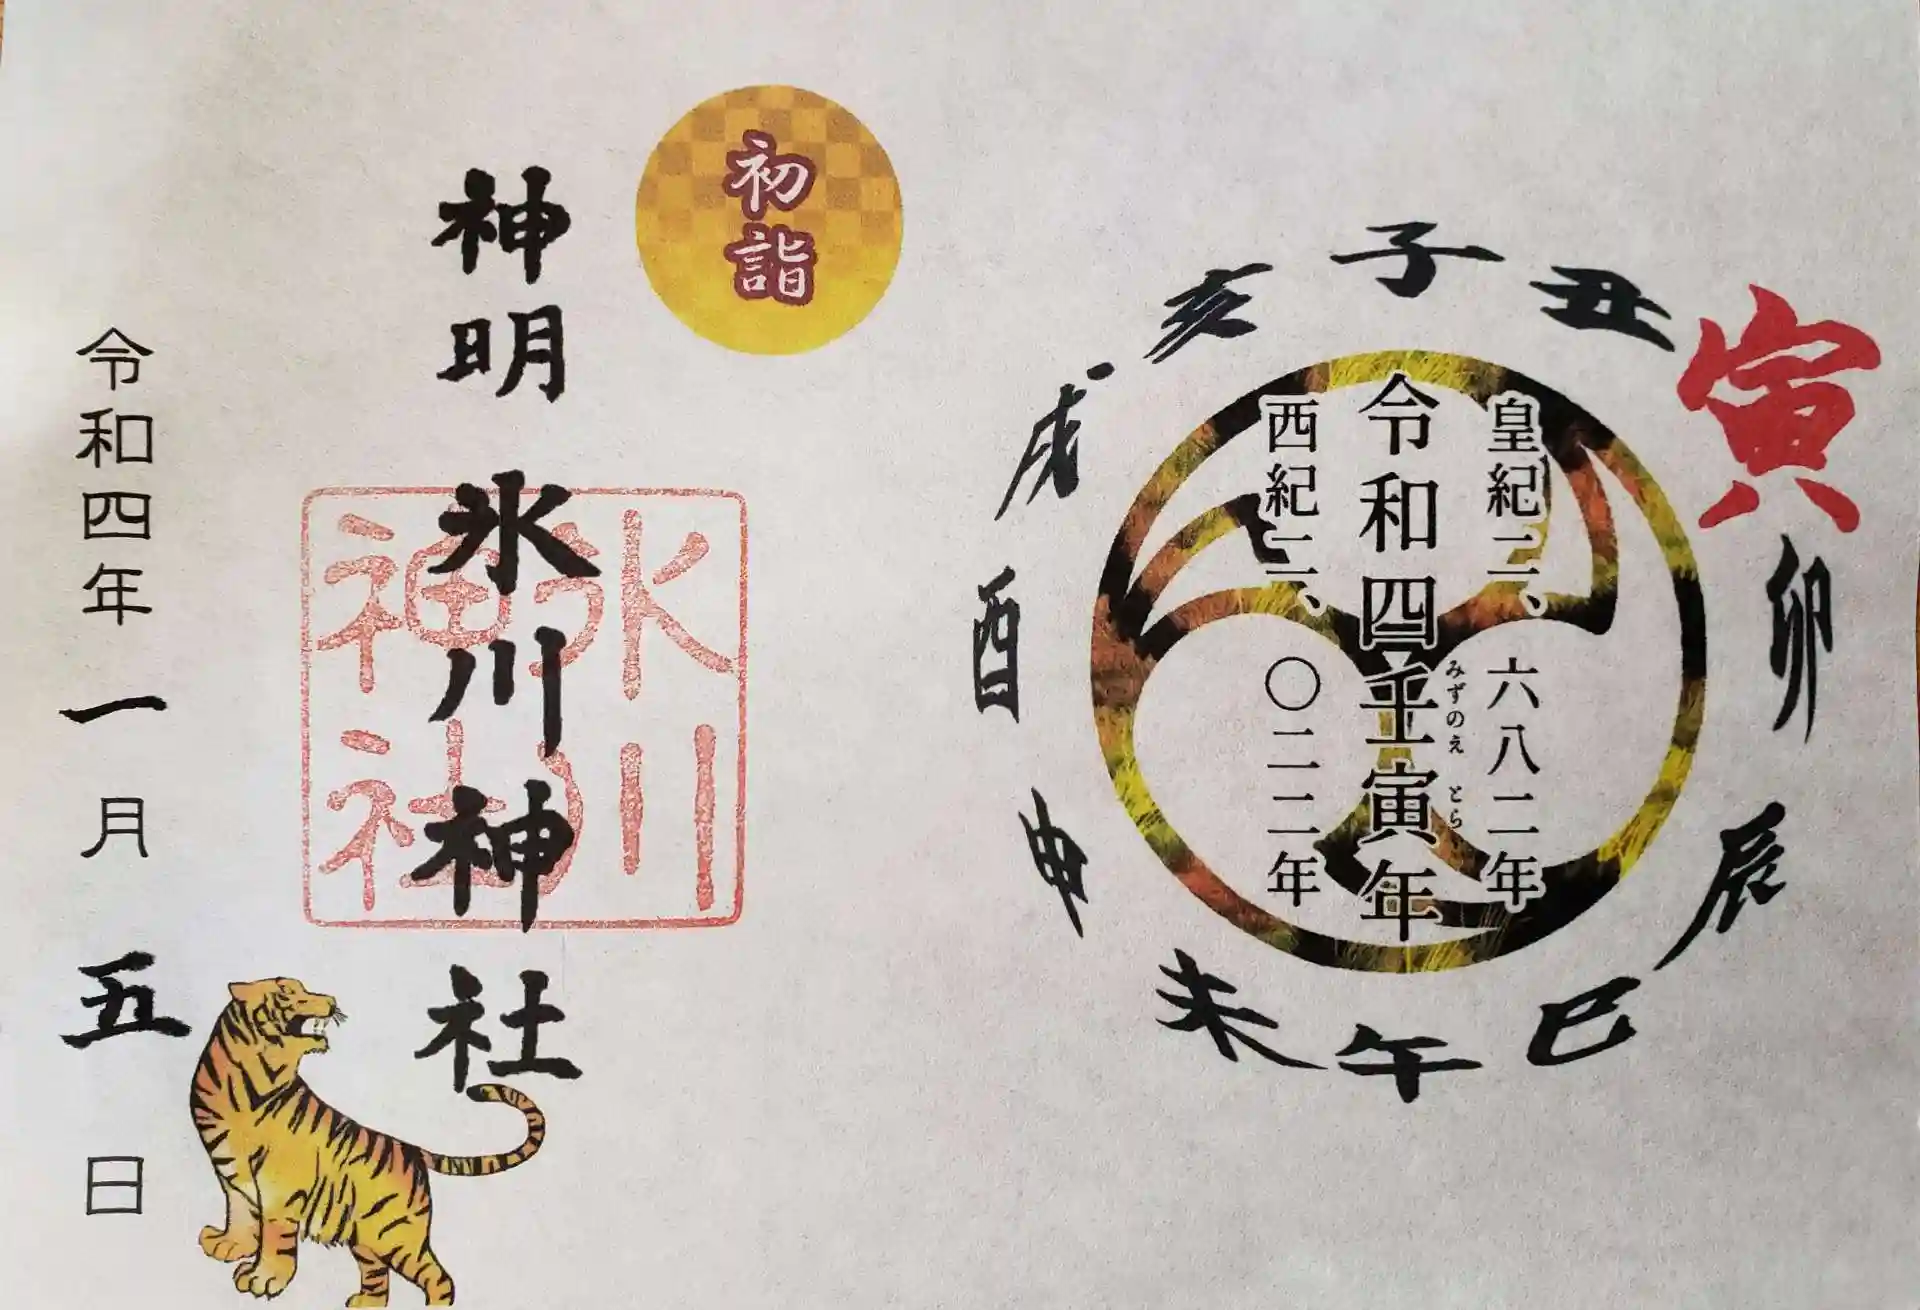 子
丑
寅
卯
辰
巳
午
未
申
酉
戌
亥
皇紀二、六八二年
令和四壬寅年
みずのえ とら
西紀二、〇二二年
初詣
神明 氷川神社
氷川
神社
令和四年 一月 五日